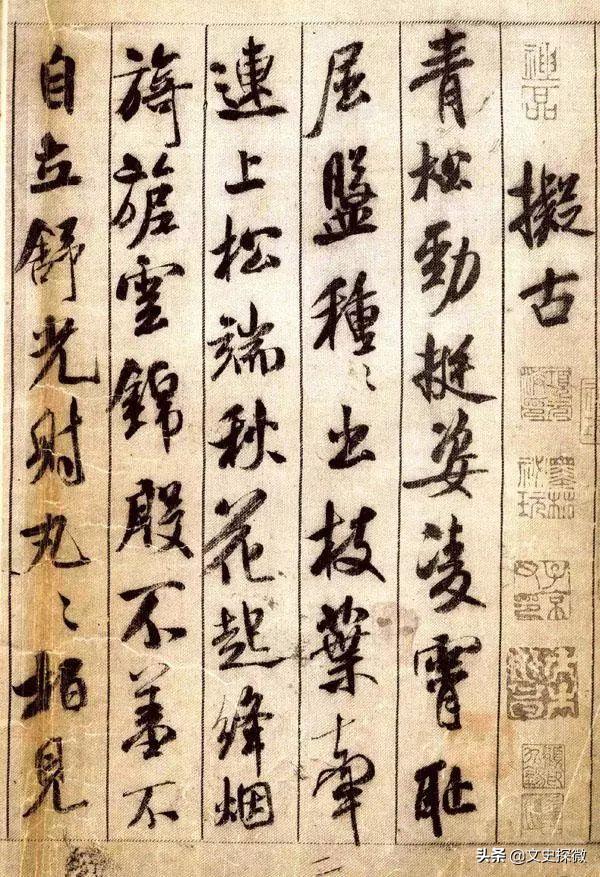 神品
擬古
青松勁挺姿凌霄耻
屈盤種〻出枝葉牽
連上松端秋花起絳烟
旖旎雲錦殷不羞不
自立舒光射丸〻柏見
头条 @文史探微